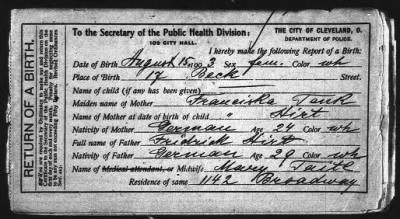 To the Secretary of the Public Health Division:
105 CITY HALL.
THE CITY OF CLEVELAND, O.
DEPARTMENT OF POLICE.
I hereby make the following Report of a Birth:
Date of Birth August 15 1903 Sex fem. Color wh
Place of Birth 17 Beck Street.
Name of child (if any has been given)
Maiden name of Mother Franciska Tank
Name of Mother at date of birth of child " Hirt
Nativity of Mother German Age 24 Color wh
Full name of Father Fridrick Hirt
Nativity of Father German Age 29 Color wh
Name of Medical attendant, or Midwife, Mary Taite
Residence of same 1142 Broadway
RETURN OF A BIRTH.